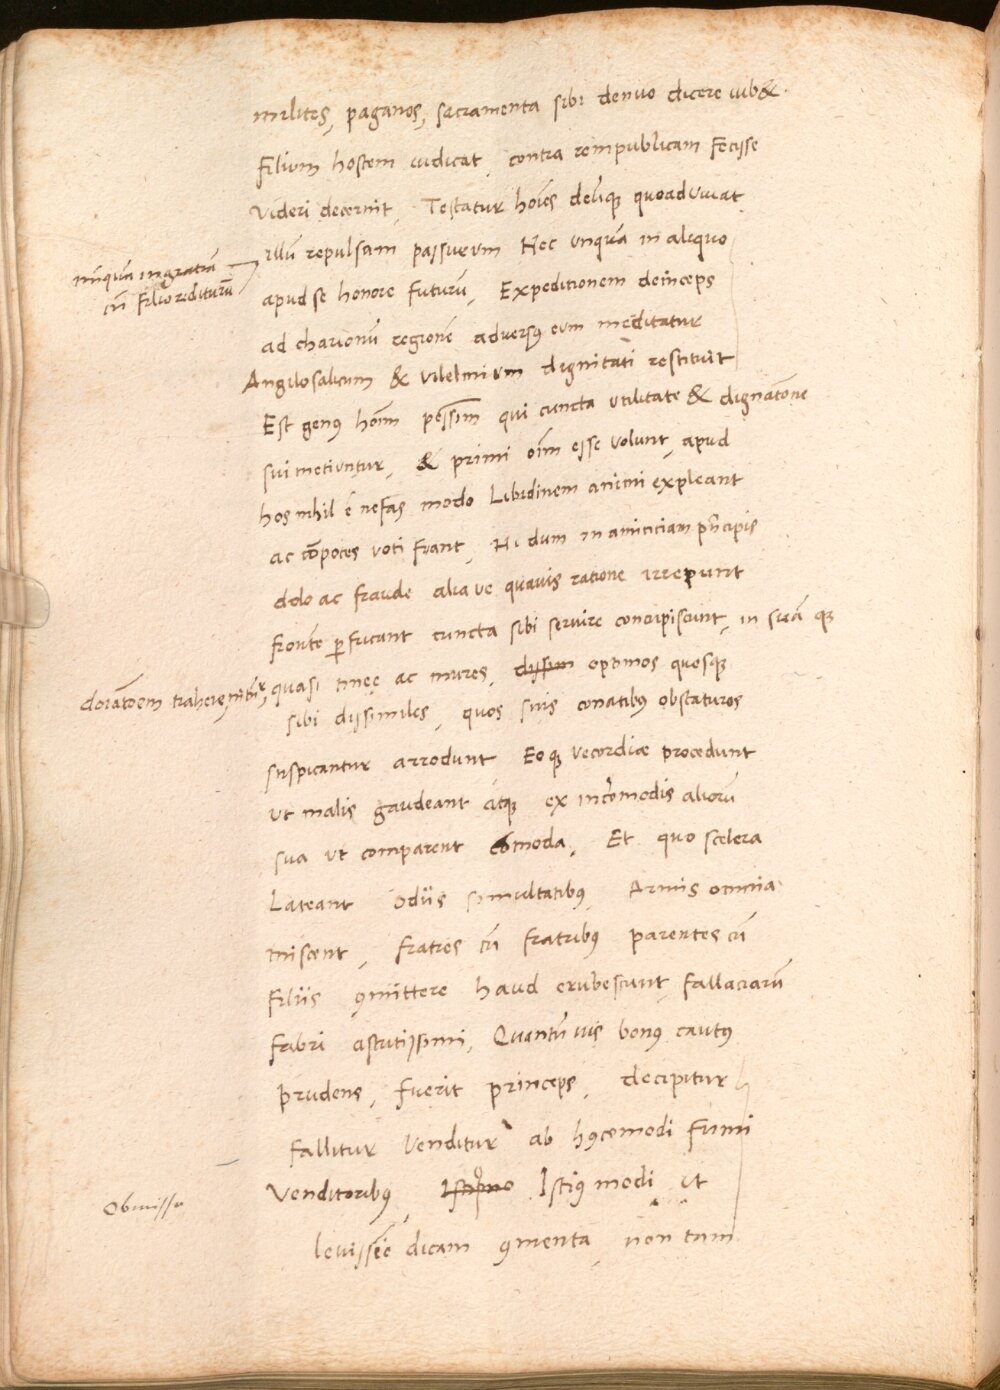 milites, paganos, sacramenta sibi denuo dicere iub&.
filium hostem iudicat, contra rempublicam fecisse
videri decernit, Testatur hoīes deūsque quoad vivat
illū repulsam passurum Nec unquā in aliquo
nūquā in gratiā
cū filio rediturū
apud se honore futurū, Expeditionem deinceps
ad charionū regionē adversus eum meditatur
Angilosalicum & vilelmium dignitati restituit
Est genus hoīm pessīm qui cuncta utilitate & dignatione
sui metiuntur, & primi oīm esse volunt, apud
hos nihil ē nefas modo Libidinem animi expleant
ac cōpotes voti fiant, Hi dum in amiciciam prīcipis
dolo ac fraude aliave quavis ratione irrepunt
fronte perfricant cuncta sibi servire concupiscunt, in suā que
dicatōem trahere nitūtur, quasi tineę ac mures, optimos quosque
sibi dissimiles, quos suis conatibus obstaturos
suspicantur arrodunt Eoque vecordiæ procedunt
ut malis gaudeant atque ex incōmodis aliorū
sua ut comparent cōmoda, Et quo scelera
Lateant odiis simultatibus, Armis omnia
miscent, fratres cū fratribus parentes cū
filiis 9mittere haud erubescunt, fallaciarū
fabri astutissimi, Quantūvis bonus cautus
prudens, fuerit princeps, decipitur
fallitur venditur ab huiuscemodi fumi
venditoribus, Istius modi ut
Obmissa
levissīe dicam 9menta, non tam